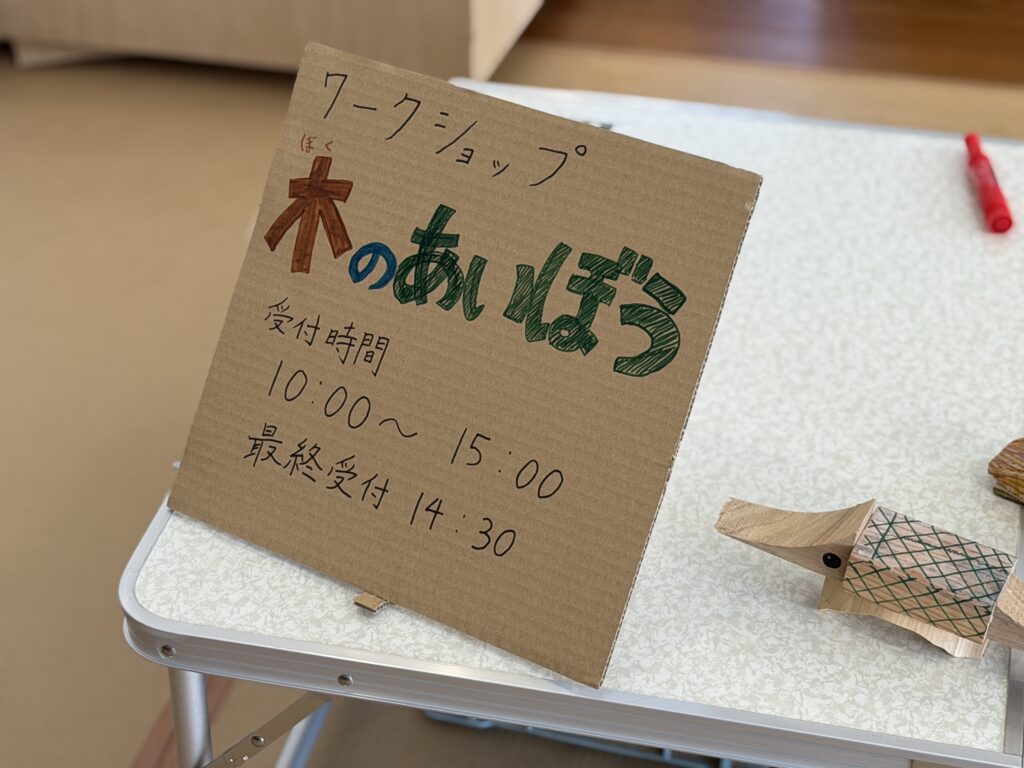 ワークショップ
ぼく
木のあいぼう
受付時間
10:00～ 15:00
最終受付 14:30